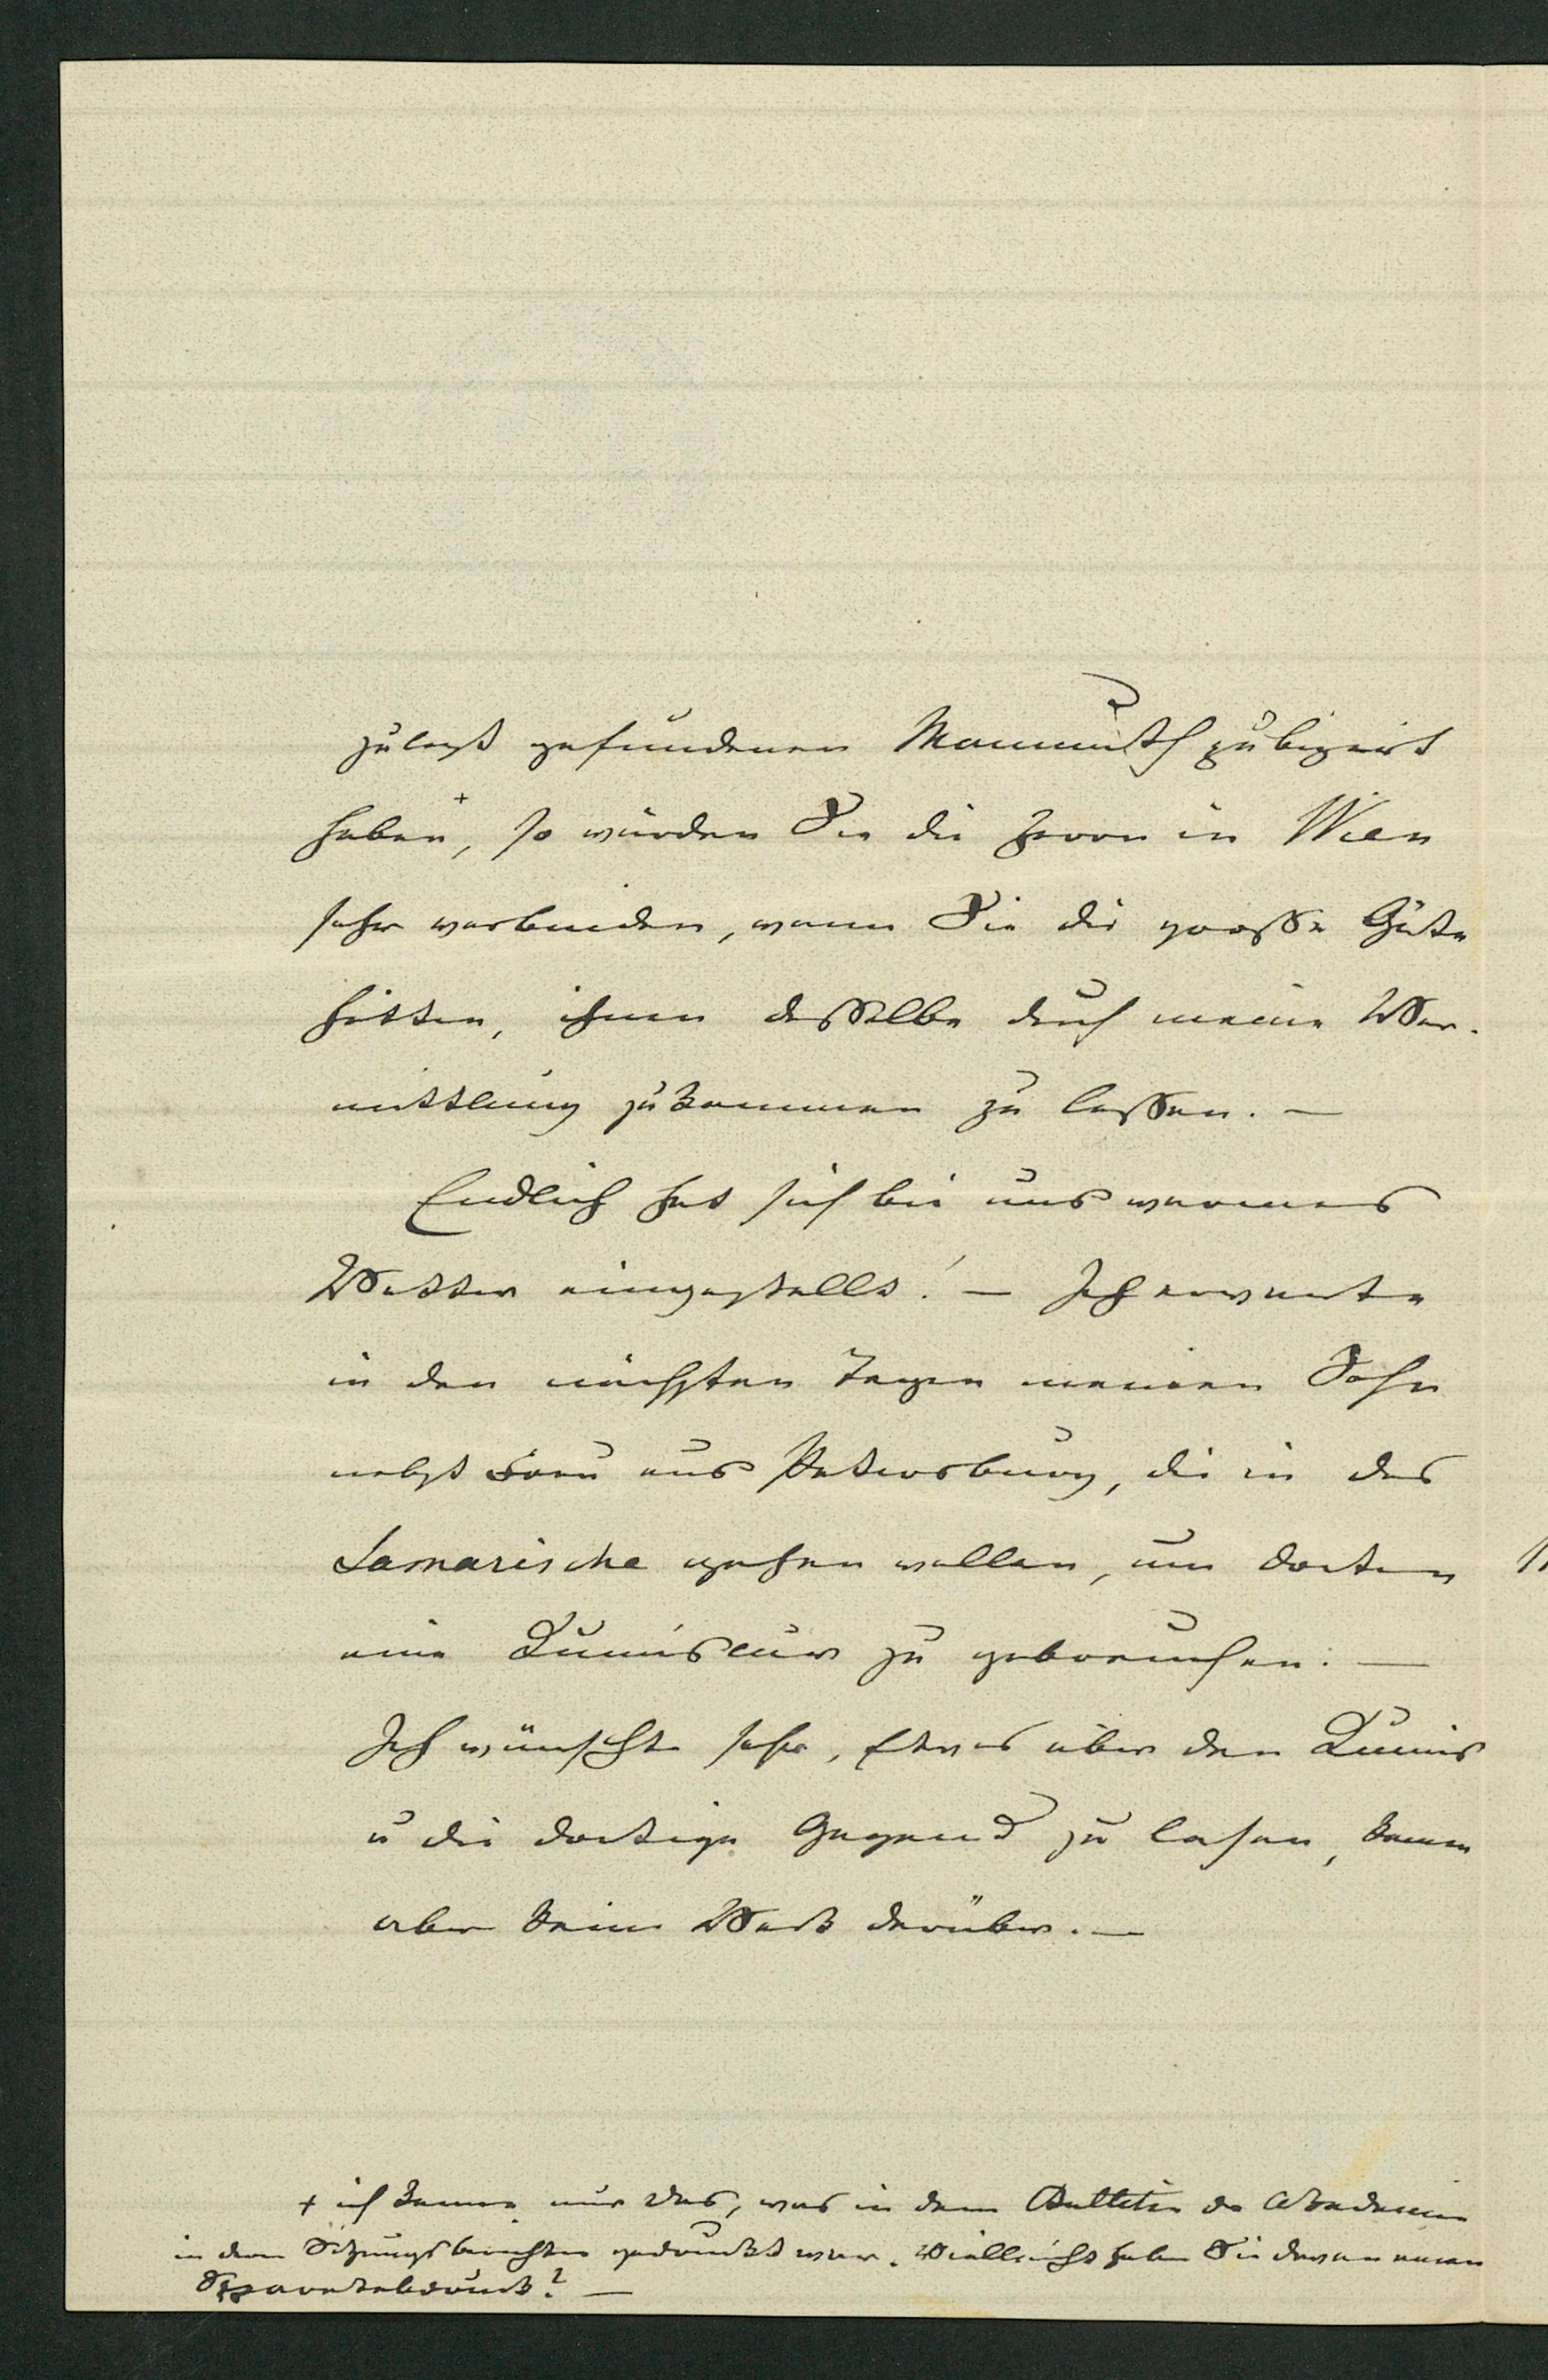 zuletzt gefundenen Mammuth publizirt
haben+, so würden Sie die Herrn in Wien
sehr verbinden, wenn Sie die grosse Güte
hätten, ihnen dasselbe durch meine Ver-
mittlung zukommen zu lassen. —
Endlich hat sich bei uns warmes
Wetter eingestellt! — Ich erwarte
in den nächsten Tagen meinen Sohn
nebst Frau aus Petersburg, die in das
Samarische gehen wollen, um dorten
eine Kumiscur zu gebrauchen. —
Ich wünschte sehr, Etwas über den Kumis
u die dortige Gegend zu lesen, kenne
aber kein Werk darüber. —
+ ich kenne nur das, was in dem Bulletin der Akademie
in den Sitzungsberichten gedruckt war. Vielleicht haben Sie davon einen
Separatabdruck? —